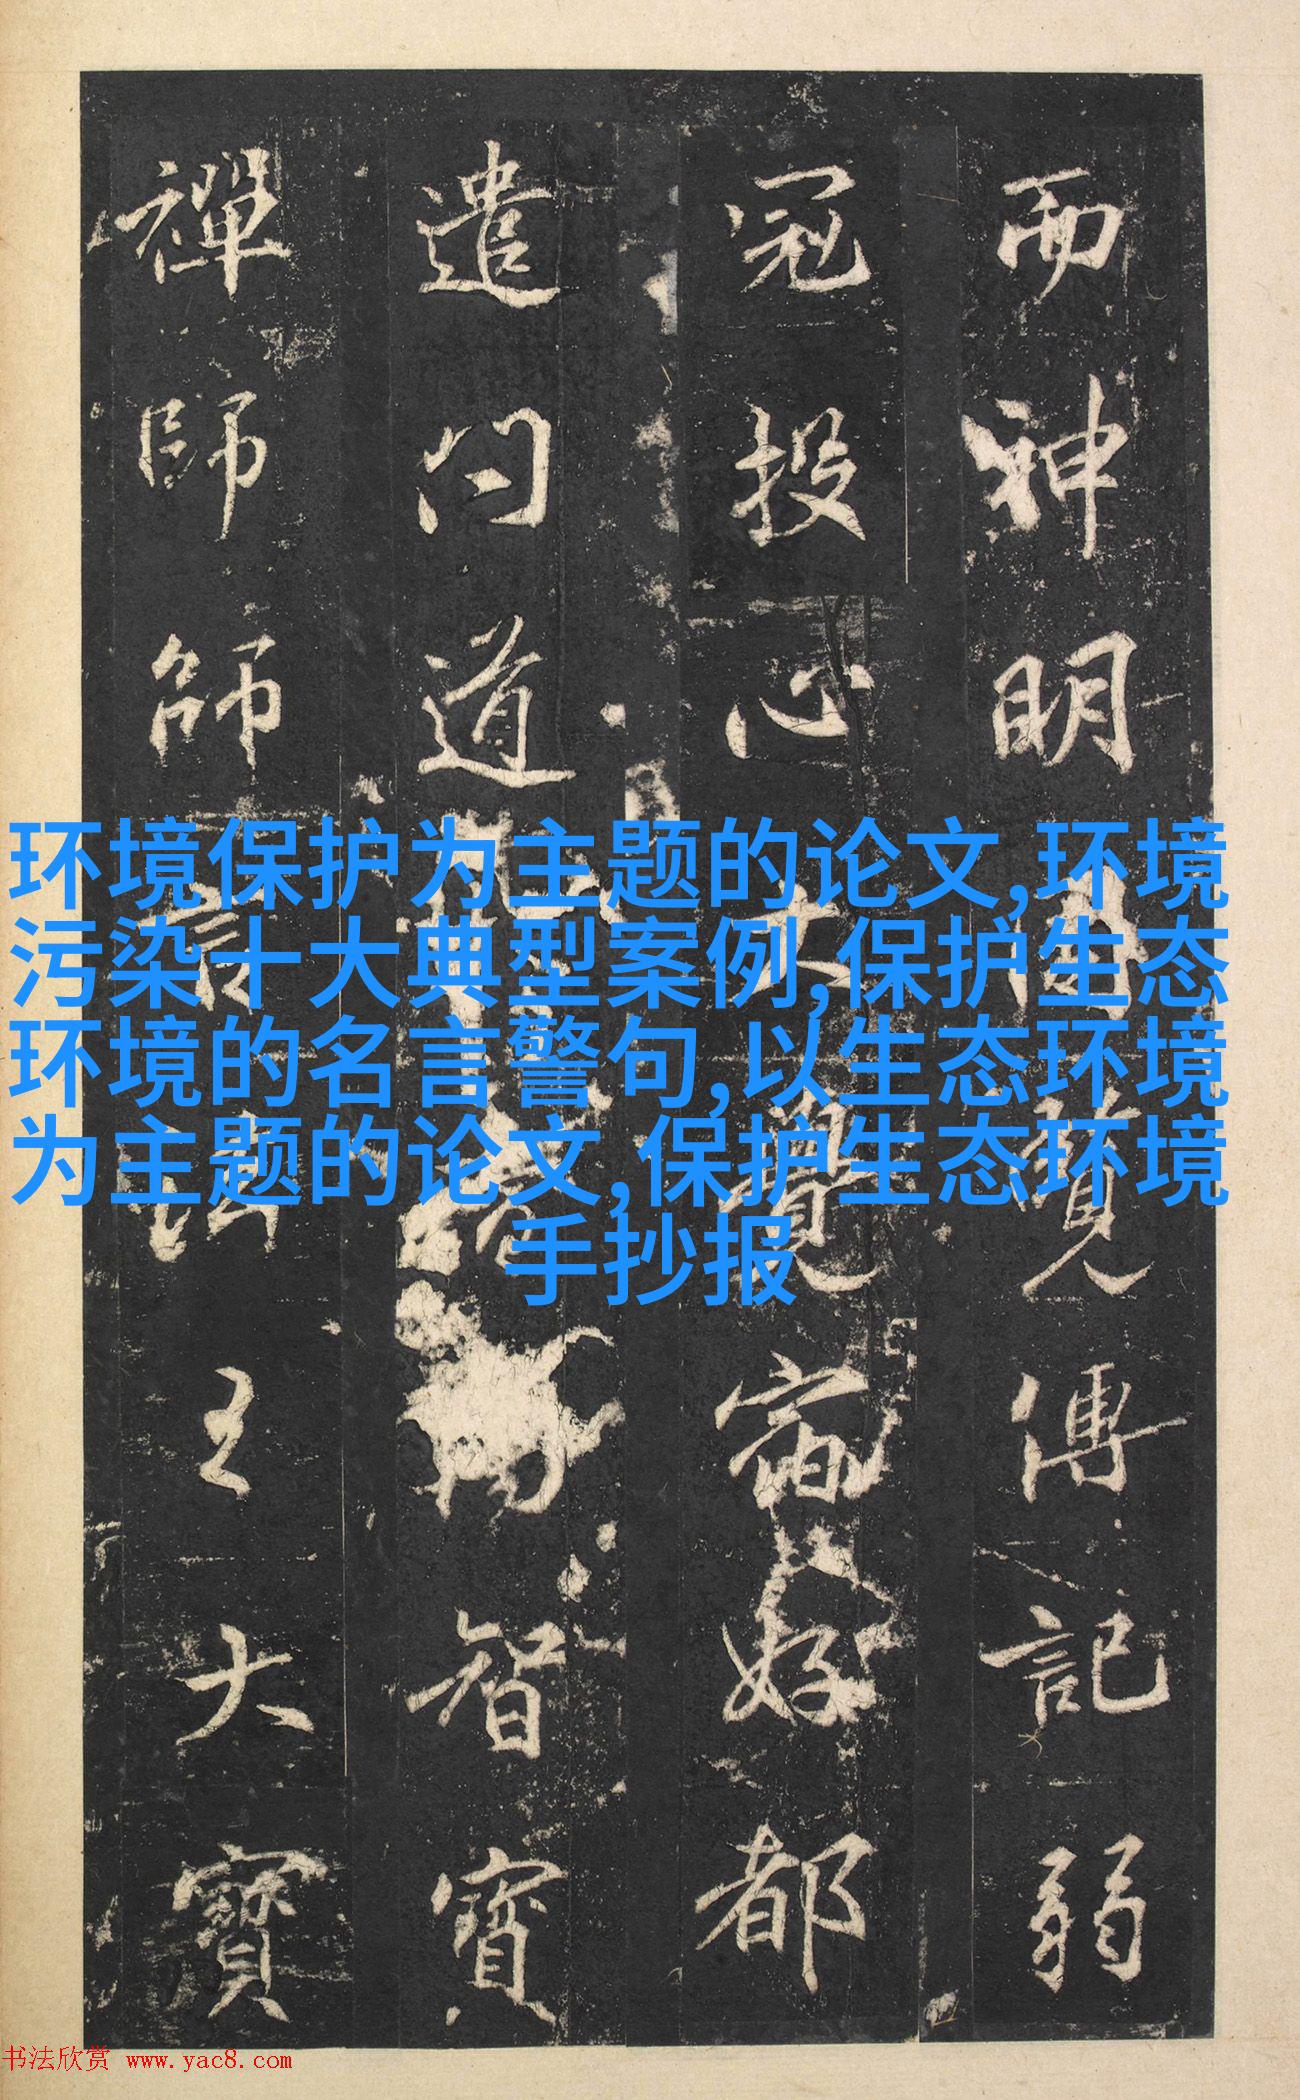 而神明周覽傳記弱
冠投心大覺宿好都
遣問道智寶
禪師師言法王大寶
环境保护为主题的论文,环境
污染十大典型案例,保护生态
环境的名言警句,以生态环境
为主题的论文,保护生态环境
手抄报
书法欣赏 www.yac8.com